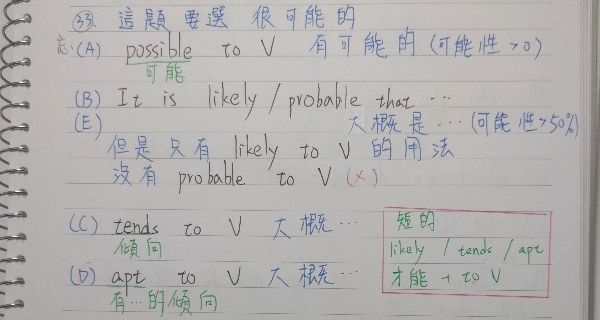 ㉝. 這題要選 很可能的
忘:(A) possible to V 有可能的(可能性>0)
可能
(B) It is likely / probable that …
(E) 大概是…(可能性>50%)
但是只有 likely to V 的用法
沒有 probable to V (×)
(C) tends to V 大概…
傾向
(D) apt to V 大概…
有…的傾向
短的
likely / tends / apt
才能 + to V